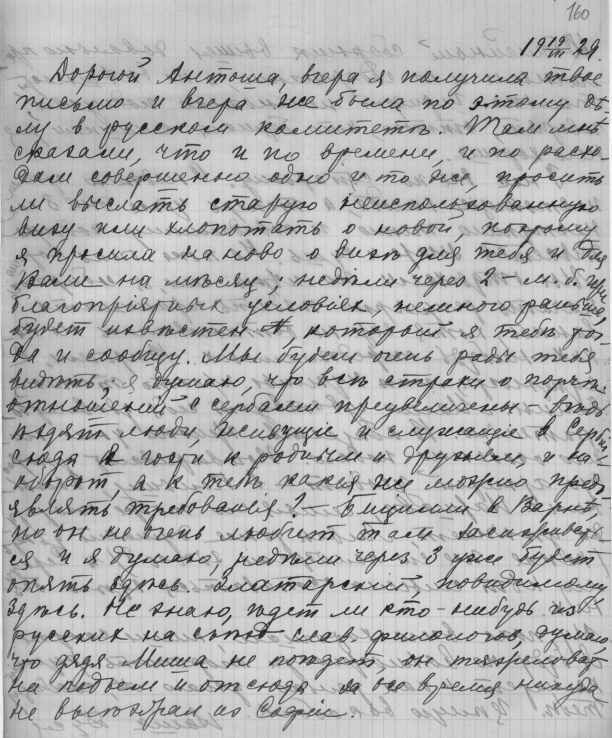 160
19 19/VIII 29.
Дорогой Антоша, вчера я получила твое
письмо и вчера же была по этому дѣ-
лу в русском комитетѣ. Там мнѣ
сказали, что и по времени, и по расхо-
дам совершенно одно и то же, просить
ли выслать старую неиспользованную
визу или хлопотать о новой, потому
я просила на ново о визѣ для тебя и для
Вали на мѣсяц; недѣли через 2 – м. б. при
благопріятных условіях, немного раньше,
будет извѣстен № который я тебѣ тог-
да и сообщу. Мы будем очень рады тебя
видѣть; я думаю, что всѣ страхи о порче
отношений с сербами преувеличены вѣдь
ѣздят люди, живущие и служащие в Сербіи,
сюда в гости к родным и друзьям, и на-
оборот, а к тебѣ какія же можно предъ-
являть требованія? – Бицилли в Варнѣ
но он не очень любит там засиживать-
ся и я думаю, недѣли через 3 уже будет
опять здѣсь. Златарский, повидимому
здѣсь. Не знаю, ѣдет ли кто-нибудь из
русских на съѣзд слав. филологов, думаю,
что дядя Миша не поѣдет он тяжеловат
на подъем и отсюда за все время никуда
не выѣзжал из Софіи.